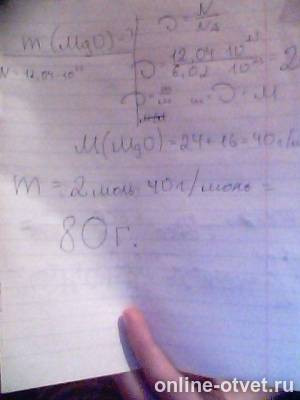 m(MgO)=?
N=12,04·10²³
υ=N/NA
υ=12,04·10²³/6,02·10²³=2
m=υ·M
M(MgO)=24+16=40г/м
m=2моль·40г/моль=
=80г.
online-otvet.ru